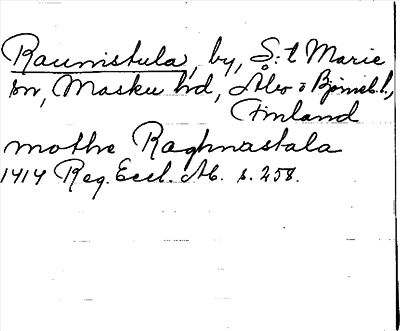 Raunistula, by, S:t Marie
sn, Masku hd, Åbo o Björneb. l.,
Finland
mothe Raghnastala
1414 Reg. Eccl. Ab. s. 258.